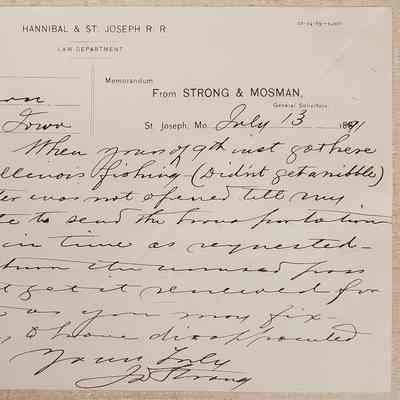 HANNIBAL & ST. JOSEPH R. R.
LAW DEPARTMENT
Memorandum
From STRONG & MOSMAN,
General Solicitors
St. Joseph, Mo. July 13 1891
Iowa
When yours of 9th inst got here
fishing (Didn't get a nibble)
was not opened till my
to send the transportation
in time as requested-
unused pass
get it renewed for
as you may fix-
to have disappointed
Yours Truly
Strong